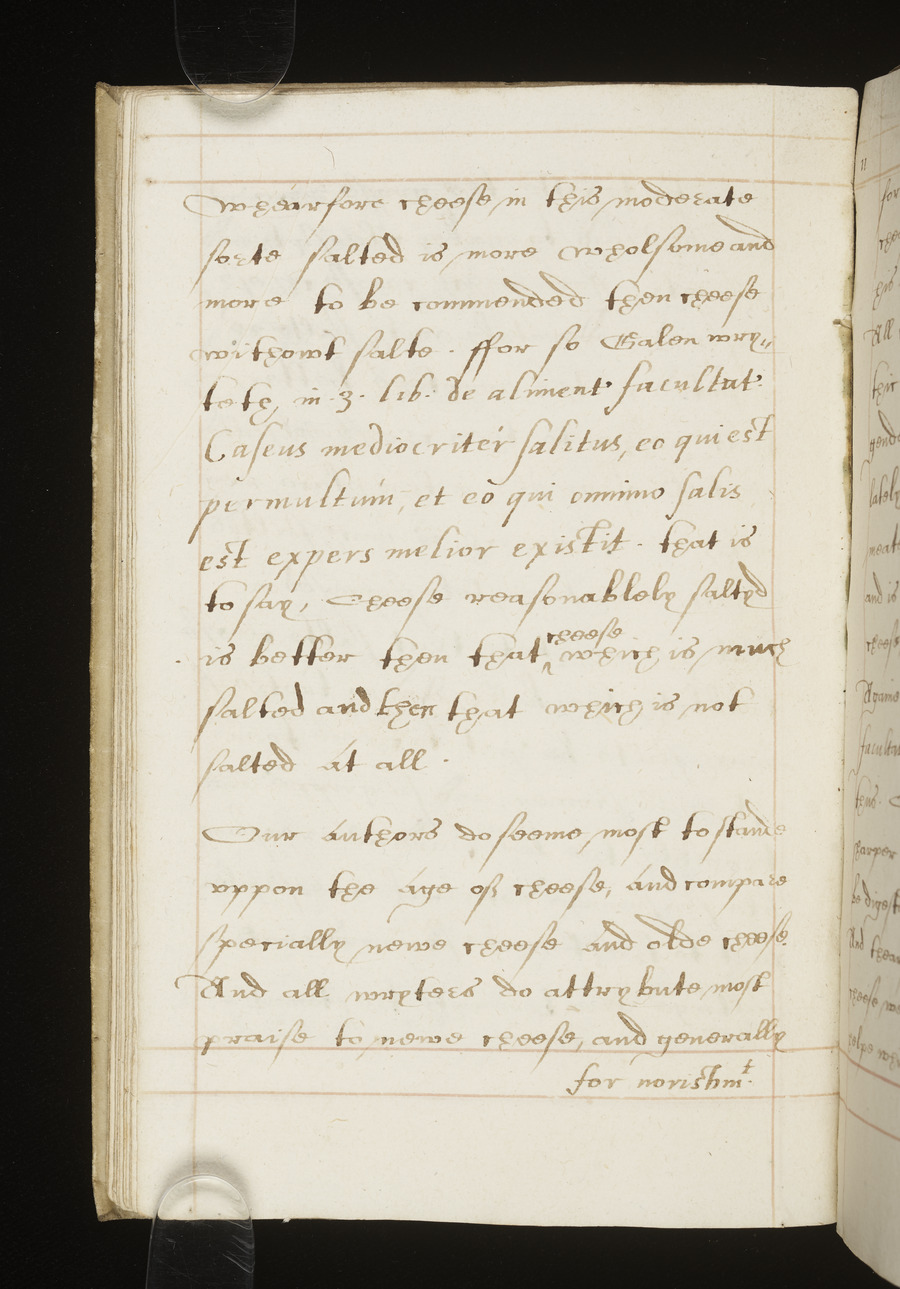 Whearfore cheese in this moderate
sorte salted is more wholsome and
more to be commended then cheese
withowt salte . ffor so Galen wry„
teth in . 3 . lib. de aliment. facultat.
Caseus mediocritér salitus, eo qui est
permultúm, et eo qui omnino salis
est expers melior existit . that is
to say, Cheese reasonablely saltyd
is better then that ^cheese which is much
salted and then that which is not
salted át all .
Our áuthors do seeme most to stande
vppon the áge off cheese, ánd compare
specially newe cheese ánd olde cheese.
And all wryters do attrybute most
praise to newe cheese, and generally
for norishmt.
11
for
his
All
lately
meate
and is
cheese
Againe
thus .
harper
be digest
And
cheese